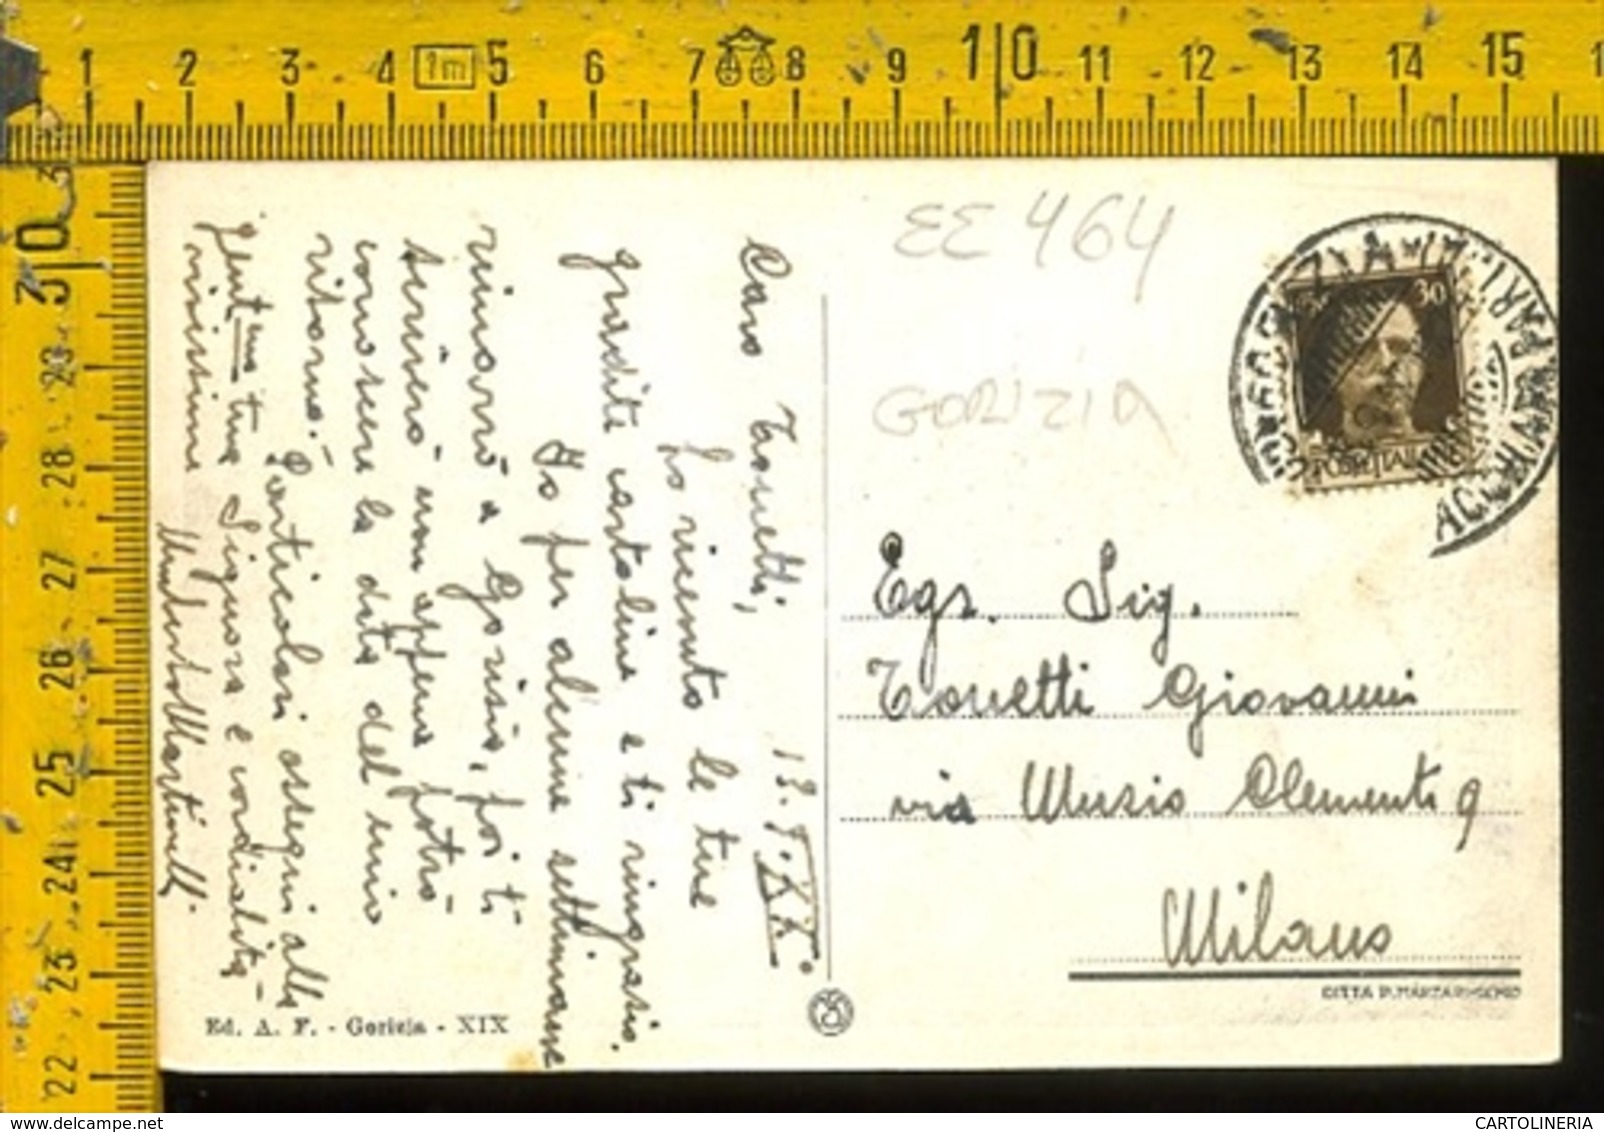 1 2 3 4 1m 5 6 7 8 9 10 11 12 13 14 15 1
3 30 29 28 27 26 25 24 23 22
EE 464
GORIZIA
30
POSTE ITALIANE
ACCHIARAPARTI
Egr. Sig.
Tonetti Giovanni
via Musio Clementi 9
Milano
DITTA P. MARZARI-SCHIO
13. I. XX°
Caro Tonetti,
Ho ricevuto le tue
gradite cartoline e ti ringrazio.
Io per alcune settimane
rimarrò a Gorizia, poi ti
scriverò non appena potrò
conoscere la data del mio
ritorno. -
Particolari ossequi alla
gent.ma tua Signora e cordialità
vivissime
Umberto Martinelli
Ed. A. F. - Gorizia - XIX
CARTOLINERIA
www.delcampe.net